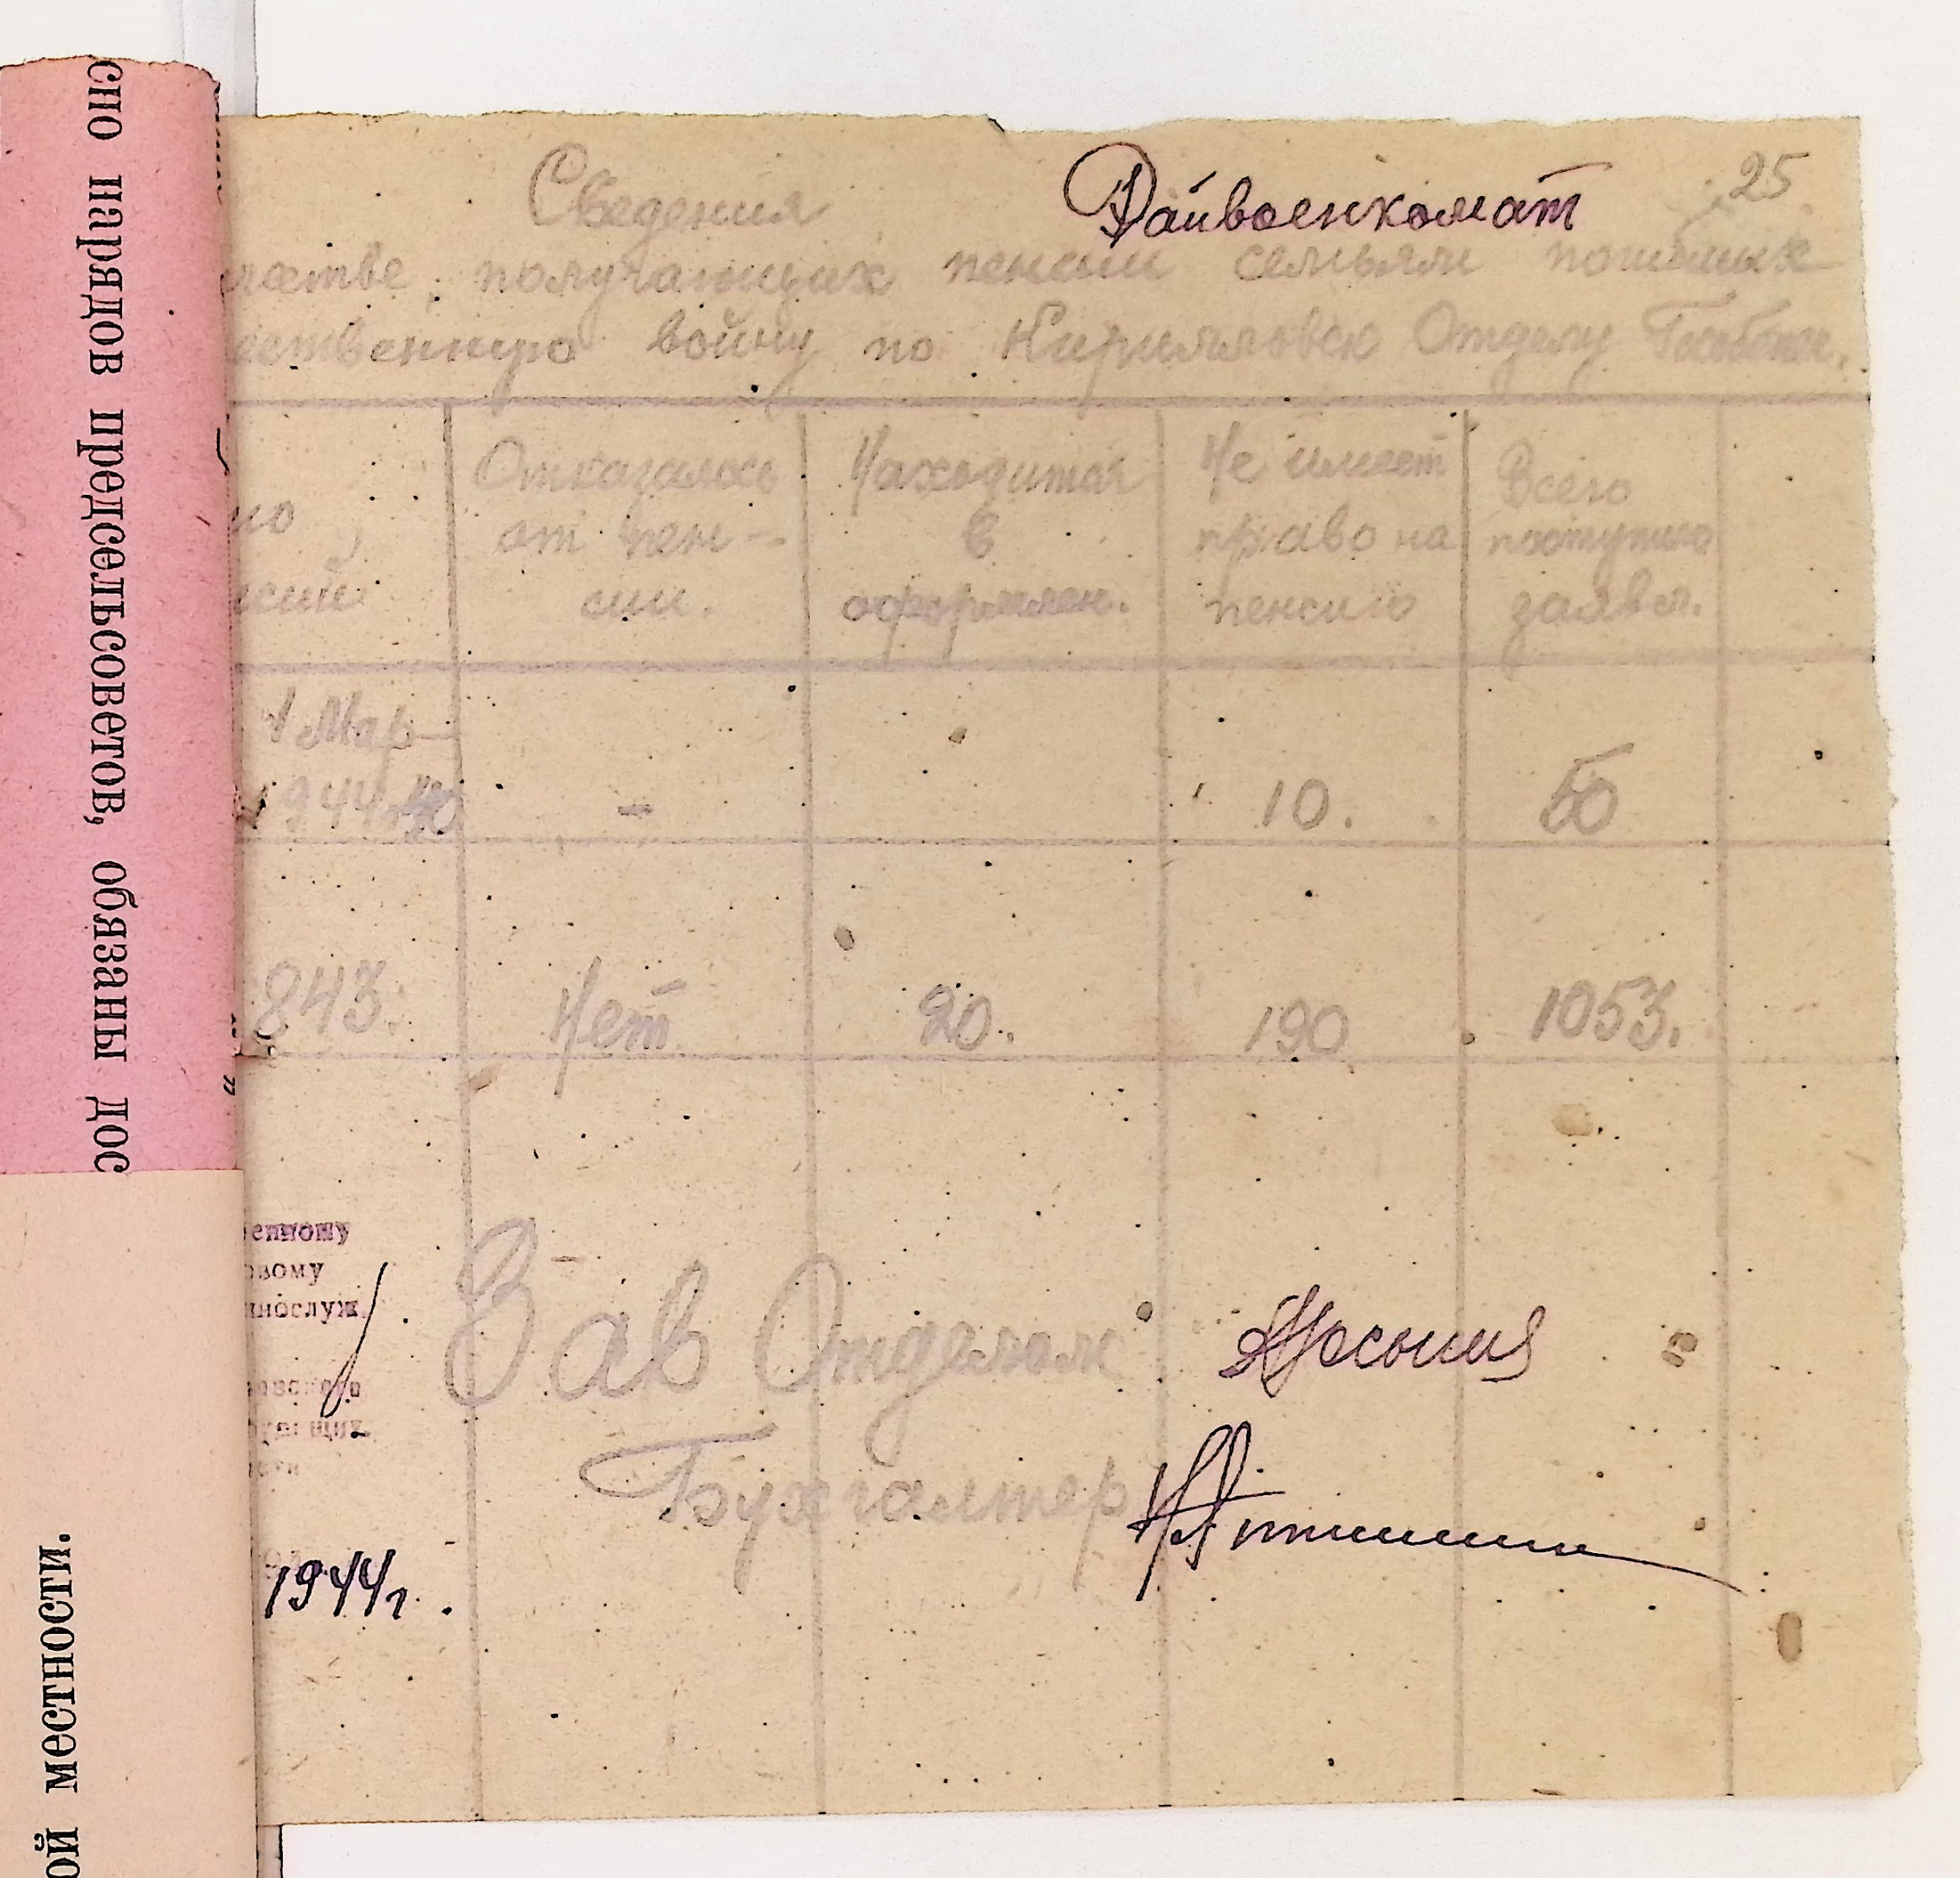 сно нарядов председьсоветов, обязаны дос
ой местности.
25
Сведения Райвоенкомат
честве, получающих пенсии семьям погибших
ественную войну по Кирилловск Отделу Гособеспеч.
но
нсий
Отказалось
от пен-
сии.
Находится
в
оформлен.
Не имеет
право на
пенсию
Всего
поступило
заявл.
1 Мар-
1944г. 40 - 10. 50
843. Нет 20. 190 1053.
енному
овому
ннослуж.
Зав Отделом
Бухгалтер
1944г.